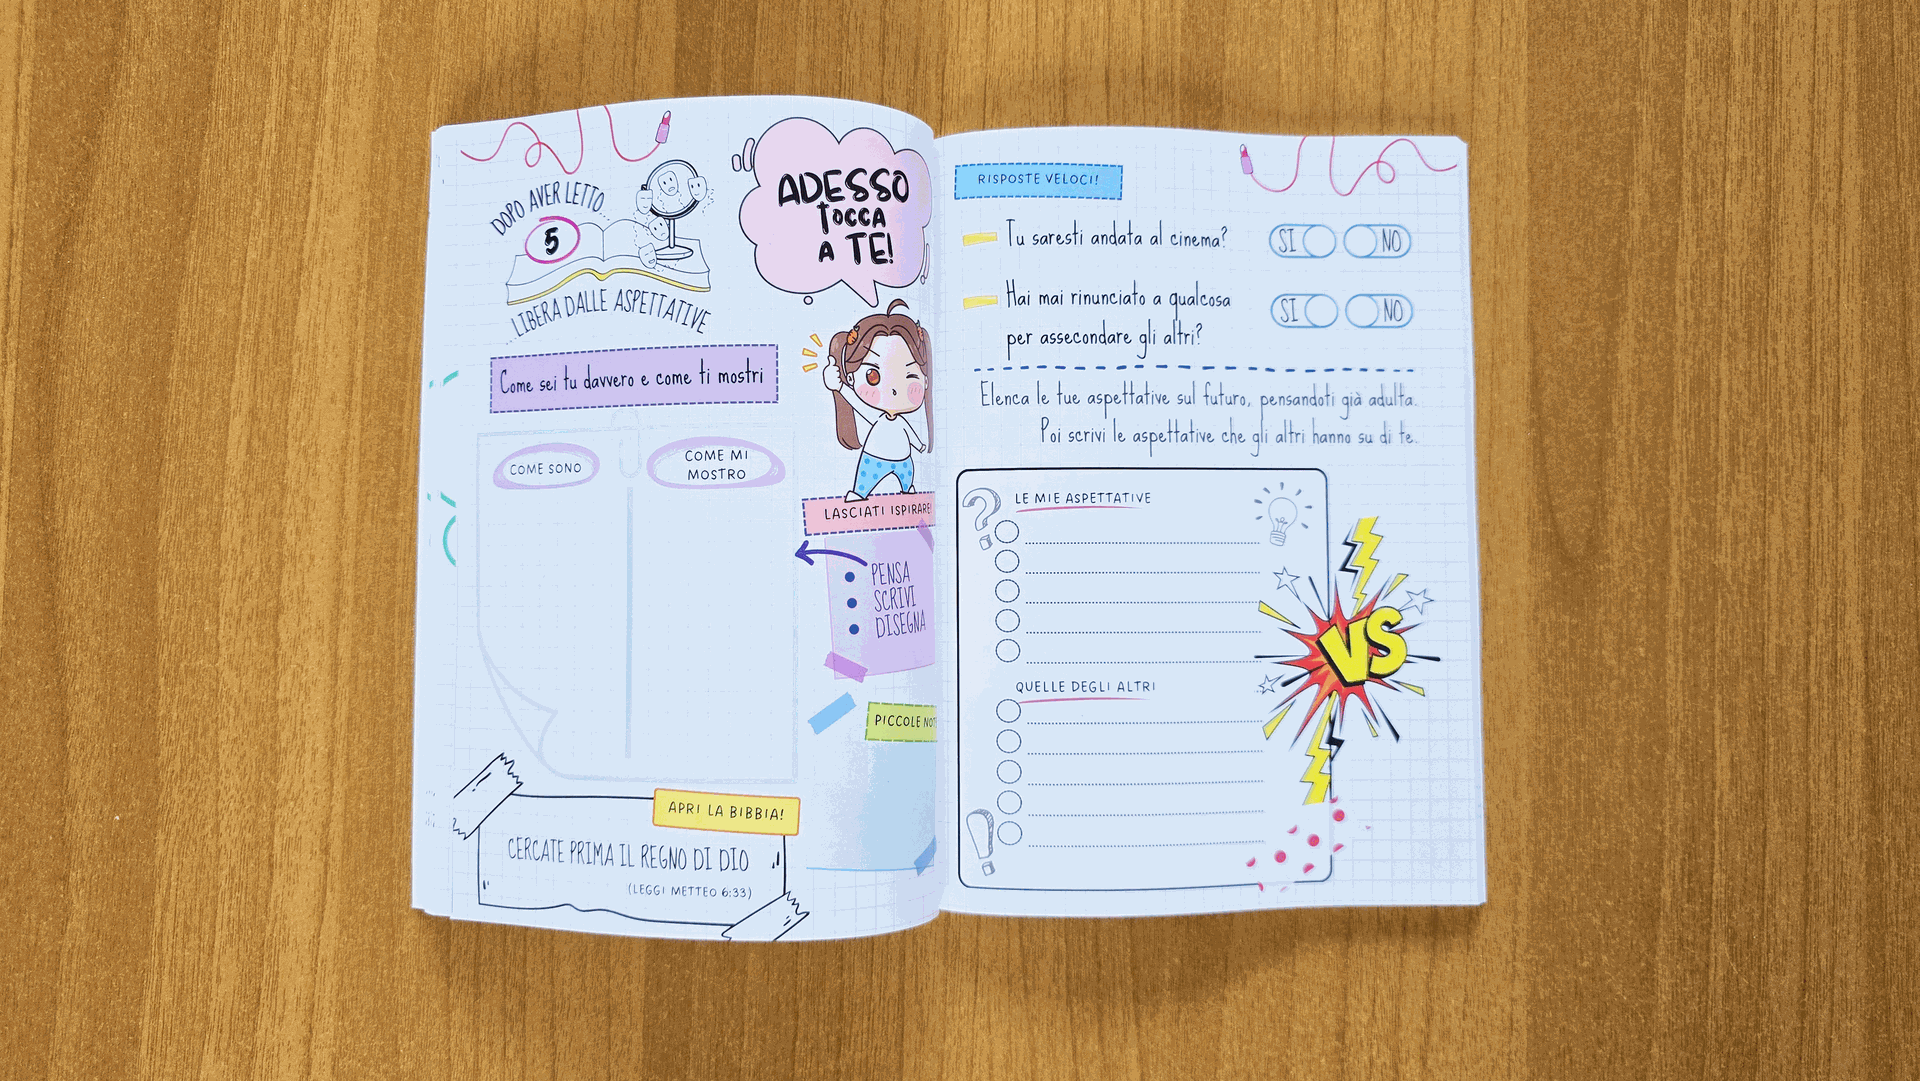 DOPO AVER LETTO...
5
...LIBERA DALLE ASPETTATIVE
ADESSO
TOCCA
A TE!
Come sei tu davvero e come ti mostri
COME SONO
COME MI
MOSTRO
LASCIATI ISPIRARE!
PENSA
SCRIVI
DISEGNA
PICCOLE
APRI LA BIBBIA!
CERCATE PRIMA IL REGNO DI DIO
(LEGGI METTEO 6:33)
RISPOSTE VELOCI!
Tu saresti andata al cinema?
SI NO
Hai mai rinunciato a qualcosa
per assecondare gli altri?
SI NO
Elenca le tue aspettative sul futuro, pensandoti già adulta.
Poi scrivi le aspettative che gli altri hanno su di te.
LE MIE ASPETTATIVE
VS
QUELLE DEGLI ALTRI